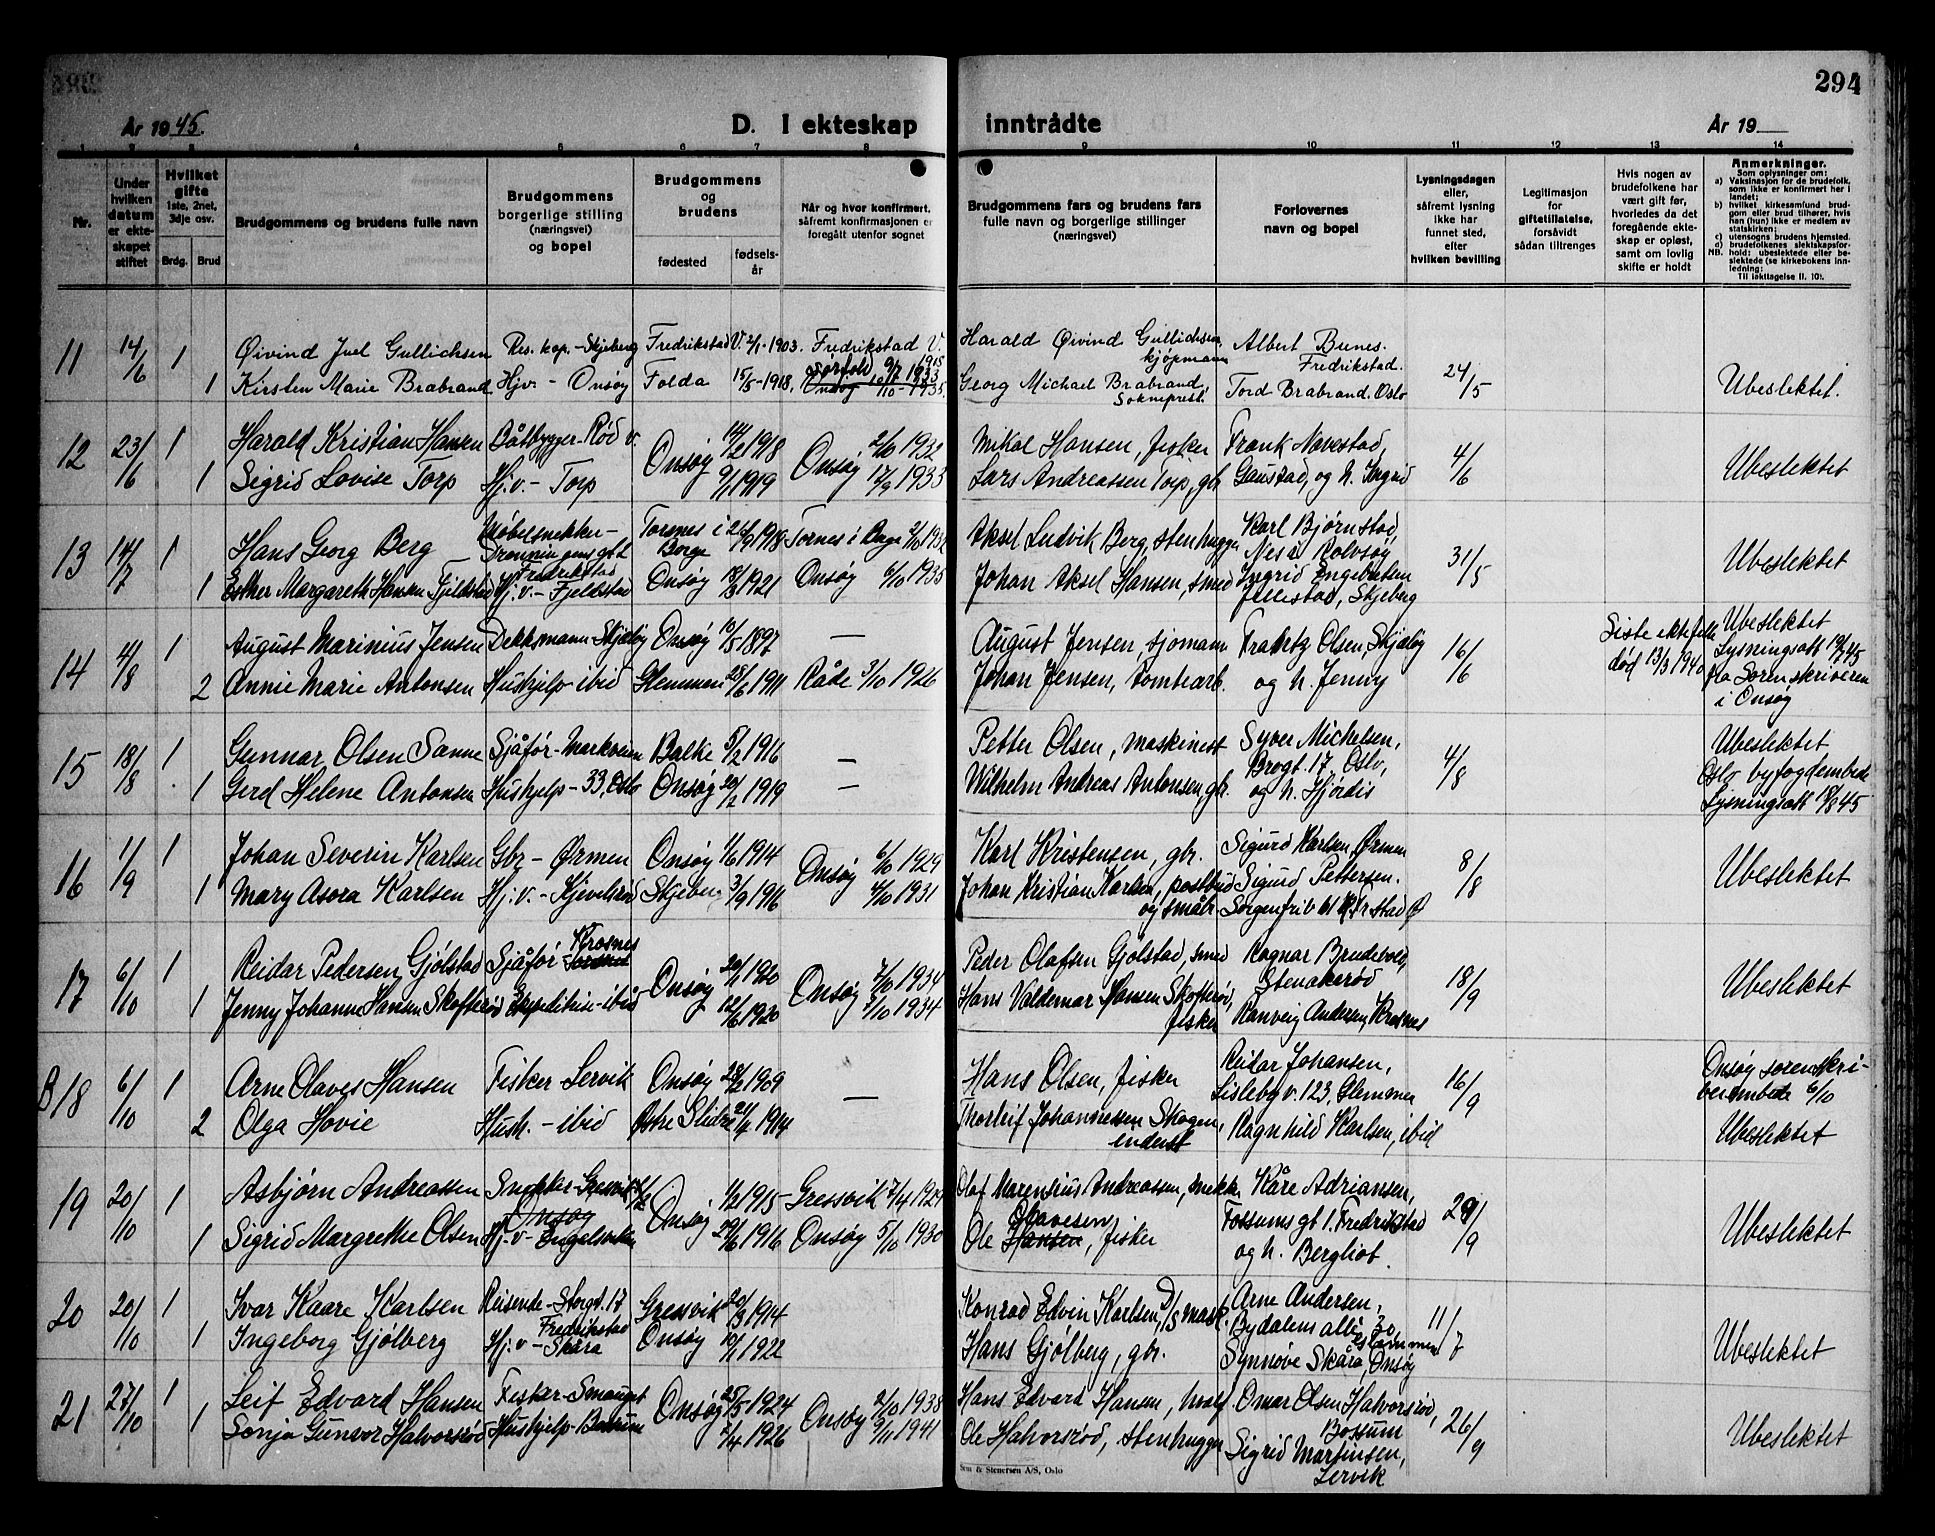 294
År 1945.
D. I ekteskap inntrådte
År 19
1 2 3 4 5 6 7 8 9 10 11 12 13 14
Nr.
Under hvilken datum er ekteskapet stiftet
Hvilket gifte 1ste, 2net, 3dje osv.
Brdg. Brud
Brudgommens og brudens fulle navn
Brudgommens borgerlige stilling (næringsvei) og bopel
Brudgommens og brudens
fødested
fødselsår
Når og hvor konfirmert, såfremt konfirmasjonen er foregålt utenfor sognet
Brudgommens fars og brudens fars fulle navn og borgerlige stillinger (næringsvei)
Forlovernes navn og bopel
Lysningsdagen eller, såfremt lysning ikke har funnet sted, efter hvilken bevilling
Legitimasjon for giftetillatelse, forsåvidt sådan tiltrenges
Hvis nogen av brudefolkene har vært gift før, hvorledes da det foregående ekteskap er opløst, samt om lovlig skifte er holdt
Anmerkninger.
Som oplysninger om:
a) Vaksinasjon for de brudefolk, som ikke er konfirmert her i landet;
b) hvilket kirkesamfund brudgom eller brud tilhører, hvis han (hun) ikke er medlem av statskirken;
c) utensogns brudens hjemsted.
d) brudefolkenes slektskapsforhold: ubeslektede eller beslektede (se kirkebokens innledning:
NB. Til iakttagelse II. 10).
11 14/6 1 Øivind Juel Gullichsen Res. kap. - Skjeberg Fredrikstad V. 2/1-1903. Fredrikstad V. 1918 Harald Øivind Gullichsen, kjøpmann Albert Bunes. Fredrikstad.
1 Kirsten Marie Brabrand Hjv. - Onsøy Folda 15/5-1918. Sørfold 9/7 1933 Onsøy 10-1935. Georg Michael Brabrand, Sokneprest. Tord Brabrand. Oslo 24/5 Ubeslektet.
12 23/6 1 Harald Kristian Hansen Båtbygger - Rød v. Onsøy 14/2 1918 Onsøy 2/10 1932 Mikal Hansen, fisker Frank Navestad,
1 Sigrid Lovise Torp Hj.v. - Torp 9/1 1919 17/9 1933 Lars Andreassen Torp, gbr Gaustad, og h. Ingrid 4/6 Ubeslektet
13 14/7 1 Hans Georg Berg Møbelsnekker - Dronningensgt. Fredrikstad Torsnes i Borge 26/9 1918 Torsnes i Borge 2/10 1932 Aksel Ludvik Berg, stenhugger Karl Bjørnstad, Nes i Rolvsøy
1 Esther Margareth Hansen Fjeldstad Hj.v. - Fjeldstad Onsøy 18/3 1921 Onsøy 6/10 1935 Johan Aksel Hansen, smed Ingrid Engebretsen Jellestad, Skjeberg 31/5 Ubeslektet
14 4/8 1 August Marinius Jensen Dekksmann - Skjæløy Onsøy 10/5 1897 — August Jensen, sjømann Olsen, Skjæløy
2 Annie Marie Antonsen Hushjelp ibid Glemmen 28/6 1911 Råde 3/10 1926 Johan Jensen, Tomtearb. og h. Jenny 16/6 Siste ektefelle død 13/3 1940 Ubeslektet Lysningsatt 19/7 45 fra Sorenskriveren i Onsøy
15 18/8 1 Gunnar Olsen Sanne Sjåfør - Markveien Balke 5/2 1916 — Petter Olsen, maskinist Syver Michelsen, Brogt. 17, Oslo,
1 Gerd Helene Antonsen Hushjelp - 33, Oslo Onsøy 20/2 1919 — Wilhelm Andreas Antonsen, gbr. og h. Hjørdis 4/8 Ubeslektet Oslo byfogdembede Lysningsatt 18/8 45
16 1/9 1 Johan Severin Karlsen Gbr - Ørmen Onsøy 1/6 1914 Onsøy 6/10 1929 Karl Kristensen, gbr. Sigurd Karlsen, Ørmen
1 Mary Asora Karlsen Hj.v. - Kjevelsrød Skjeberg 3/9 1916 4/10 1931 Johan Kristian Karlsen, postbud og småbr. Sigurd Pettersen. Sorgenfrib 61 Fr stad Ø 8/8 Ubeslektet
17 6/10 1 Reidar Pedersen Gjølstad Sjåfør - Krosnes Onsøy 20/1 1920 Onsøy 7/10 1934 Peder Olafsen Gjølstad, smed Ragnar Brudevold, Stenakerød
1 Jenny Johanne Hansen Skofterød Expeditrise - ibid 12/6 1920 7/10 1934 Hans Valdemar Hansen Skofterød, fisker Ranveig Andersen, Krosnes 18/9 Ubeslektet
B 18 6/10 1 Arne Olaves Hansen Fisker Lervik Onsøy 28/2 1909 — Hans Olsen, fisker Reidar Johansen, Lisleby v. 123, Glemmen
2 Olga Hovie Hush. - ibid Østre Slidre 21/4 1914 Thorleif Johannessen Skogen, inderst Ragnhild Karlsen, ibid 16/9 Onsøy sorenskriverembede 6/10 Ubeslektet
19 20/10 1 Asbjørn Andreassen Snekker - Gressvik Onsøy Onsøy 1/2 1915 - Gressvik 17/4 1929 Olaf Marensius Andreassen, snekker Kåre Adriansen,
1 Sigrid Margrethe Olsen Hj.v. - Engelsviken 29/6 1916 Onsøy 5/10 1930 Ole Hansen Olavesen, fisker Fossums gt 1. Fredrikstad og h. Bergliot. 29/9 Ubeslektet
20 20/10 1 Ivar Kaare Karlsen Reisende - Storgt. 17 Fredrikstad Gressvik 20/3 1914 Konrad Edvin Karlsen, D/S mask. Arne Andersen, Bydalens allé 30, Glemmen
1 Ingeborg Gjølberg Hj.v - Skåra Onsøy 10/1 1922 Hans Gjølberg, gbr. Synnøve Skåra, Onsøy 11/7 Ubeslektet
21 27/10 1 Leif Edvard Hansen Fisker - Smaugt Onsøy 25/5 1924 Onsøy 2/10 1938 Hans Edvard Hansen, hvalf Omar Olsen Halvorsrød, Bossum
1 Sonja Gunvor Halvorsrød Hushjelp - Bossum 2/4 1926 9/11 1941 Ole Halvorsrød, stenhugger Sigrid Martinsen, Lervik 26/9 Ubeslektet
Sem & Stenersen A/S, Oslo